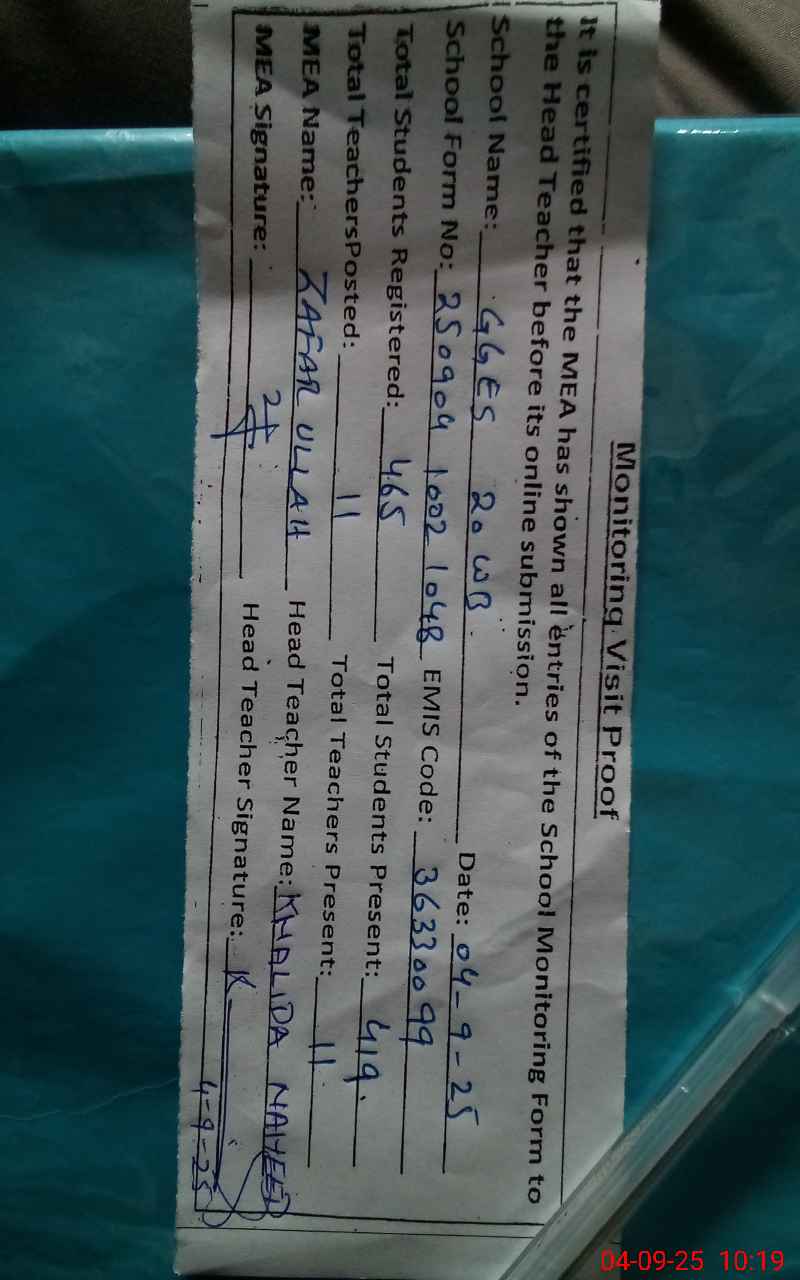 Monitoring Visit Proof
It is certified that the MEA has shown all entries of the School Monitoring Form to
the Head Teacher before its online submission.
School Name: GGES 20 WB Date: 04-9-25
School Form No: 250904 1002 1048 EMIS Code: 36330099
Total Students Registered: 465 Total Students Present: 419.
Total TeachersPosted: 11 Total Teachers Present: 11
MEA Name: ZAFAR ULLAH Head Teacher Name: KHALIDA NAHEED
MEA Signature: Head Teacher Signature: K
4-9-25
04-09-25 10:19